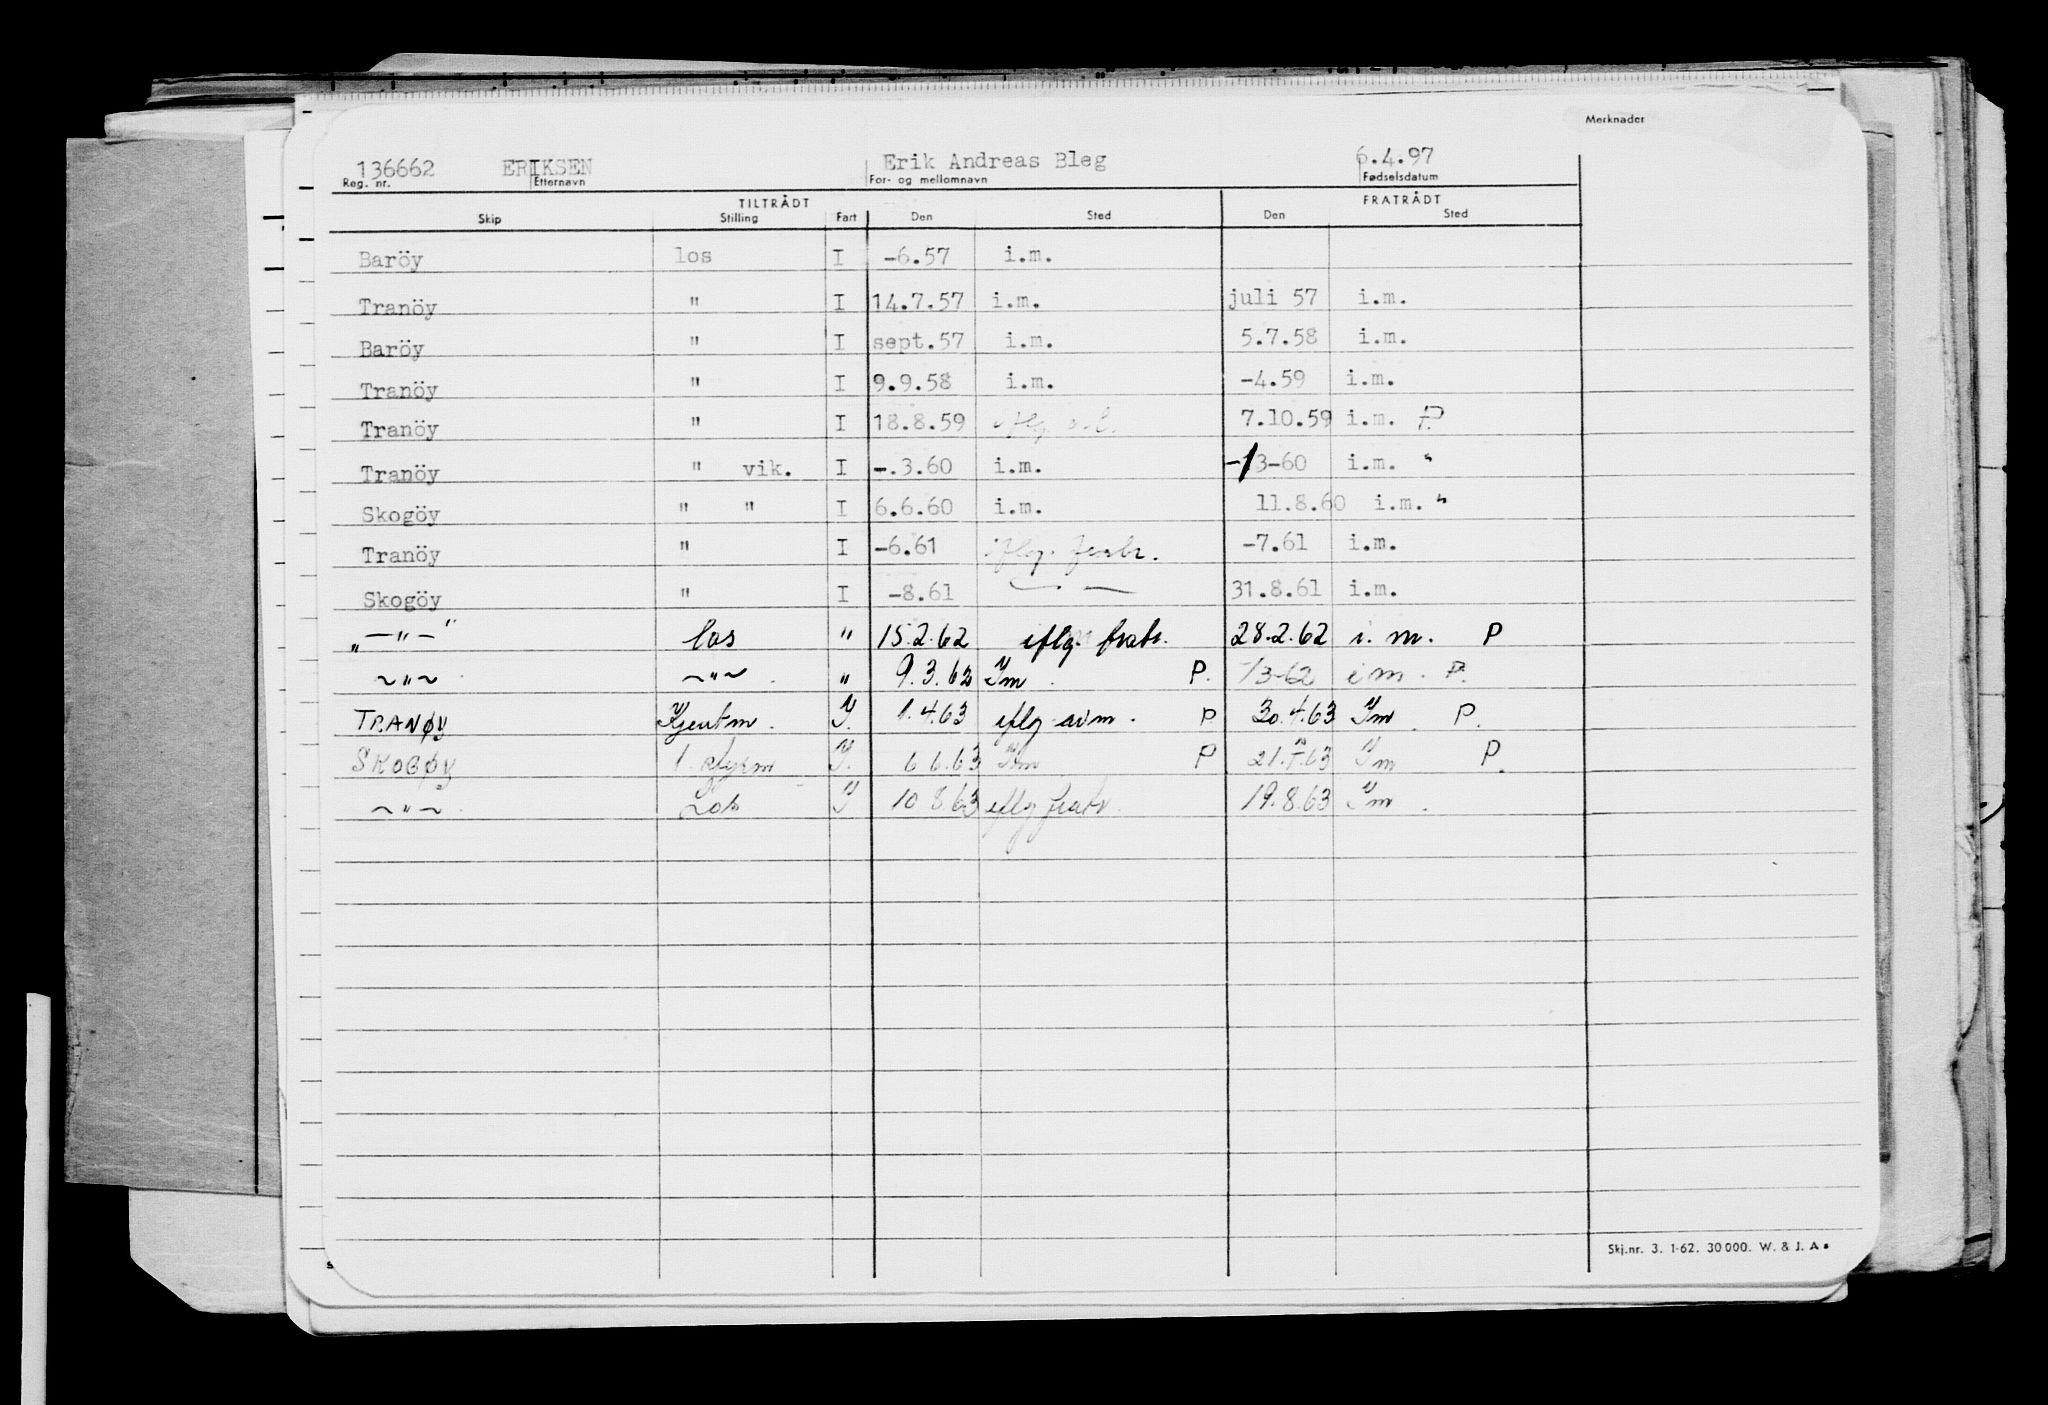 Merknader
136662 ERIKSEN Erik Andreas Bleg 6.4.97
Reg. nr. Etternavn For- og mellomnavn Fødselsdatum
TILTRÅDT FRATRÅDT
Skip Stilling Fart Den Sted Den Sted
Baröy los I -6.57 i.m.
Tranöy " I 14.7.57 i.m. juli 57 i.m.
Baröy " I sept.57 i.m. 5.7.58 i.m.
Tranöy " I 9.9.58 i.m. -4.59 i.m.
Tranöy " I 18.8.59 7.10.59 i.m. P
Tranöy " vik. I -.3.60 i.m. -13-60 i.m. "
Skogöy " " I 6.6.60 i.m. 11.8.60 i.m. "
Tranöy " I -6.61 iflg. fratr. -7.61 i.m.
Skogöy " I -8.61 — — 31.8.61 i.m.
„—"—" los " 15.2.62 iflg. fratr. 28.2.62 i.m. P
~"~ ~"~ " 9.3.62 Im. P. /3-62 im. P.
TRANØY Kjentm. I. 1.4.63 iflg avm. P 30.4.63 Im. P.
SKOGØY 1. styrm I. 6 6.63 Im P 21.7.63 Im P.
~"~ Los I 10 8.63 iflg fratr. 19.8.63 Im.
Skj.nr. 3. 1-62. 30 000. W. & J. A.